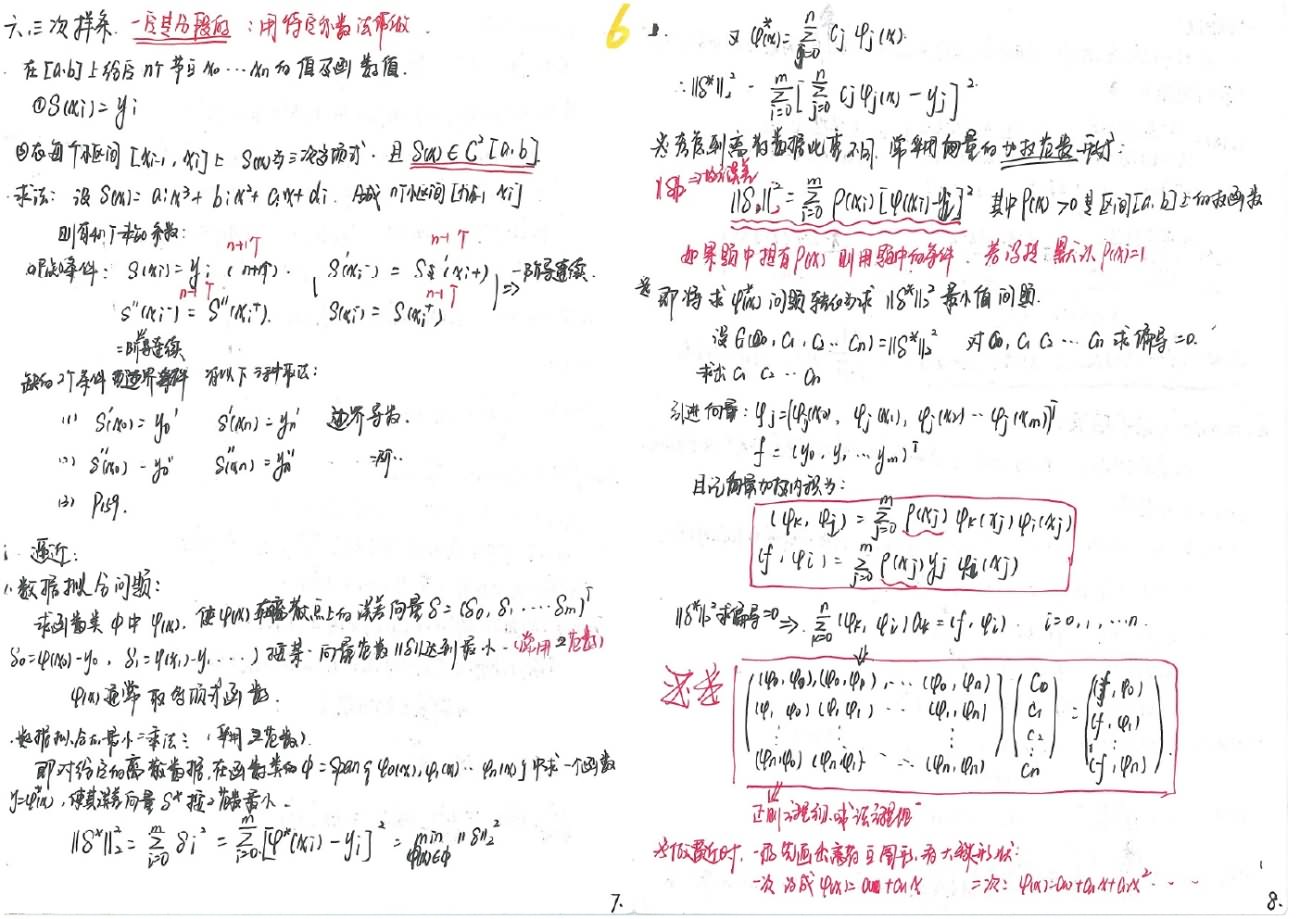 六、三次样条. 一定是分段的：用待定系数法帮做.
在[a,b]上给定n个节点x₀…xₙ的值及函数值.
①S(xᵢ)=yᵢ
②在每个小区间[xᵢ₋₁, xᵢ]上 S(x)为三次多项式. 且 S(x)∈C²[a,b]
求法: 设S(x)=aᵢx³+bᵢx²+cᵢx+dᵢ. 分成n个小区间[xᵢ₋₁ xᵢ]
则有4n个未知系数:
n+1个 n-1个
条件: S(xᵢ)=yᵢ (n+1个). S'(xᵢ⁻)=S'(xᵢ⁺) ⇒一阶导连续.
n-1个 n-1个
S''(xᵢ⁻)=S''(xᵢ⁺). S(xᵢ⁻)=S(xᵢ⁺)
二阶导连续
缺的2个条件 边界条件 有以下三种形式:
(1) S'(x₀)=y₀' S'(xₙ)=yₙ' 边界导数.
(2) S''(x₀)=y₀'' S''(xₙ)=yₙ'' 二阶..
(3) P159.
逼近:
1.数据拟合问题:
求函数类φ中φ(x), 使φ(x)在离散点上的误差向量δ=(δ₀, δ₁ … δₘ)ᵀ
δ₀=φ(x₀)-y₀, δ₁=φ(x₁)-y₁ …) 按某一向量范数‖δ‖达到最小.(常用2范数)
φ(x)通常取多项式函数.
数据拟合的最小二乘法: (采用2范数)
即对给定的离散数据,在函数类的φ=span{φ₀(x),φ₁(x)…φₙ(x)}中求一个函数
y=φ*(x), 使其误差向量δ*按2范数最小.
‖δ*‖₂²=∑ᵢ₌₀ᵐ δᵢ²=∑ᵢ₌₀ᵐ[φ*(xᵢ)-yᵢ]²=min φ(x)∈φ ‖δ‖₂²
7.
6
又φ*(x)=∑ⱼ₌₀ⁿ cⱼφⱼ(x).
∴‖δ*‖₂² = ∑ᵢ₌₀ᵐ[∑ⱼ₌₀ⁿ cⱼφⱼ(x)-yⱼ]²
※考虑到离散数据比重不同,常采用向量的加权范数形式:
⇒均误差
‖δ‖₂²=∑ᵢ₌₀ᵐ ρ(xᵢ)[φ(xᵢ)-yᵢ]² 其中ρ(x)>0是区间[a,b]上的权函数
如果题中提有ρ(x)则用题中的条件. 若没提,默认ρ(x)=1
※即将求φ*(x)问题转化为求‖δ*‖₂²最小值问题.
设G(c₀, c₁, c₂…cₙ)=‖δ*‖₂² 对c₀, c₁ c₂ … cₙ求偏导=0.
求出c₁ c₂ … cₙ
引进向量: φⱼ=[φⱼ(x₀), φⱼ(x₁), φⱼ(x₂)…φⱼ(xₘ)]ᵀ
f=(y₀, y₁ … yₘ)ᵀ
且记向量加权内积为:
(φₖ, φⱼ)=∑ⱼ₌₀ᵐ ρ(xⱼ)φₖ(xⱼ)φᵢ(xⱼ)
(f, φᵢ)=∑ⱼ₌₀ᵐ ρ(xⱼ)yⱼφᵢ(xⱼ)
‖δ*‖₂²求偏导=0⇒ ∑ᵢ₌₀ⁿ(φₖ, φᵢ)aₖ=(f, φᵢ). i=0,1,…n.
必考
(φ₀, φ₀),(φ₀, φ₁), … (φ₀, φₙ) c₀ (f, φ₀)
(φ₁, φ₀)(φ₁, φ₁) … (φ₁, φₙ) c₁ = (f, φ₁)
⋮ ⋮ ⋮ c₂ ⋮
(φₙ, φ₀)(φₙ, φ₁) … (φₙ, φₙ) cₙ (f, φₙ)
正则方程组或法方程组
※做最近时,一般先画出离散点图形,看大致形状:
一次设成φ(x)=a₀+a₁x 二次: φ(x)=a₀+a₁x+a₂x² …
8.